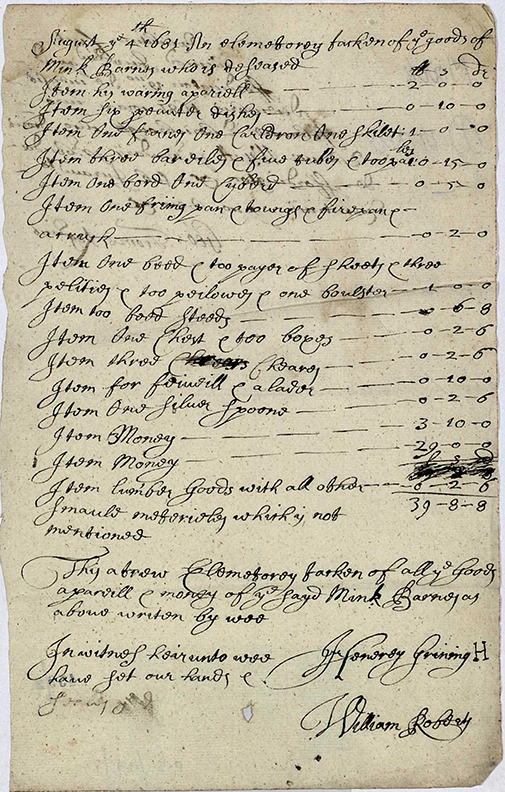 August ye 4th 1681 An elemetorey tacken of ye goods of
Mink Barnes who is deseased lb s d
Item his waring apariell 2 - 0 - 0
Item six peauter dishes 0 - 10 - 0
Item One One Caldron One skilet 1 - 0 - 0
Item three bareiles & five tubes & too 0 - 15 - 0
Item One bord One Cubberd 0 - 5 - 0
Item One friing pan & toungs & firepan &
0 - 2 - 0
Item One beed & too payer of sheets & three
& too peilowes & one boulster 1 - 0 - 0
Item too beed steeds 0 - 6 - 8
Item One Chest & too boxes 0 - 2 - 6
Item three Cheares 0 - 2 - 6
Item for feweill & alader 0 - 10 - 0
Item One silver spoone 0 - 2 - 6
Item Money 3 - 10 - 0
Item Money 29 - 0 - 0
Item lumber Goods with all other 0 - 2 - 6
smaule meterieles which is not 39 - 8 - 8
mentioned
This a trew Elemetorey tacken of all ye Goods
apareill & money of ye sayd Mink Barnes as
above writen by wee
In witnes heirunto wee Henerey Grining H
have set our hands &
William Roberts